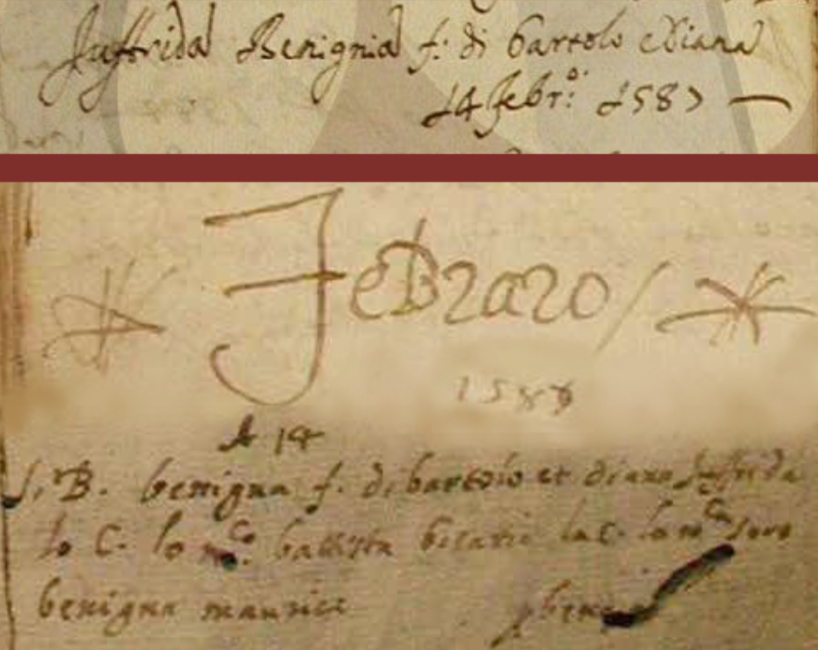 Juffrida Benignia f: di bartolo e Diana
14 febr:o 1587 —
Febraro /
1587
A 14
J. B. benigna f. di bartolo et diana Juffrida
lo C. lo m.co battista la C. la m.ca soro
benigna maurici